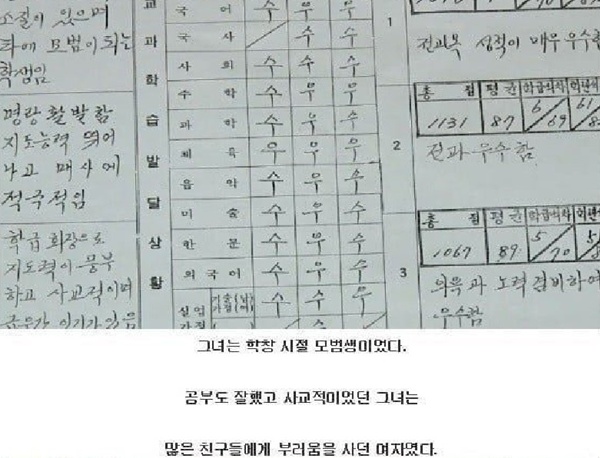 소질이 있으며
타에 모범이 되는
학생임
명랑 활발함
지도능력 뛰어
나고 매사에
적극적임
학급 회장으로
지도력이 풍부
하고 사교적이며
교과학습발달상황
국어 수 우 우
국사 수 수
사회 수 수 수
수학 수 우 우
과학 수 우 수
체육 우 우 우
음악 수 우 수
미술 수 우 수
한문 수 우 수
외국어 수 수 수
실업 기술(남) 수 수 우
가정 가정(여)
1
전과목 성적이 매우 우수함
총점 평균 학급석차
1131 87 6/69
2
전과 우수함
총점 평균 학급석차
1067 89 5/70
3
의욕과 노력 겸비하여
우수함
그녀는 학창 시절 모범생이었다.
공부도 잘했고 사교적이었던 그녀는
많은 친구들에게 부러움을 사던 여자였다.